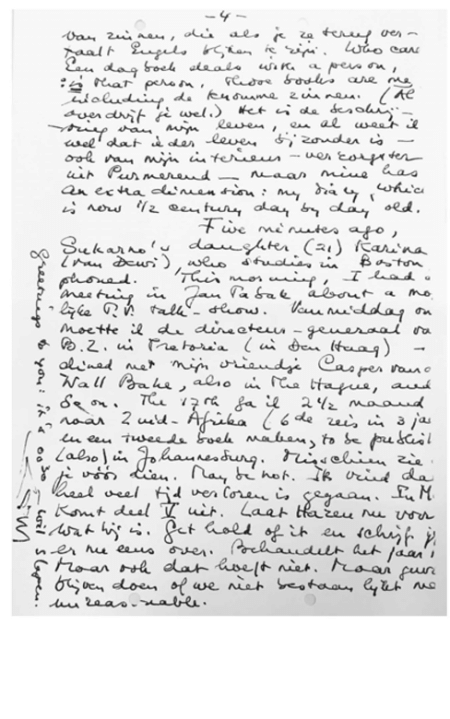 -4-
van zinnen, die als je ze terug ver-
taalt Engels blijken te zijn. Who care
Een dagboek deals with a person,
is that person, those books are me
including de kromme zinnen. (Al
overdrijf je wel.) Het is de beschrij-
ving van mijn leven, en al weet ik
wel dat ieder leven bijzonder is —
ook van mijn interieur-verzorgster
uit Purmerend — maar mine has
an extra dimention: my diary, which
is now 1/2 century day by day old.
Five minutes ago,
Sukarno's daughter (21) Karina
(van Dewi), who studies in Boston
phoned. This morning, I had a
meeting in Jan Tabak about a mo
lijke T.V. talk-show. Vanmiddag on
moette ik de directeur-generaal va
B.Z. in Pretoria (in Den Haag) —
dined met mijn vriendje Casper van
Wall Bake, also in The Hague, and
so on. The 17th ga ik 2 1/2 maand
naar Zuid-Afrika (6de reis in 3 ja
en een tweede boek maken, to be publish
(also) in Johannesburg. Misschien zie
je vóór dien. Maybe not. Ik vind da
heel veel tijd verloren is gegaan. In M
komt deel V uit. Laat Hazeu nu voor
wat hij is. Get hold of it en schrijf j
er nu eens over. Behandelt het jaar
Maar ook dat hoeft niet. Maar
blijven doen of we niet bestaan lijkt me
unreasonable.
Greetings to you: it's 0030 I will slapen.